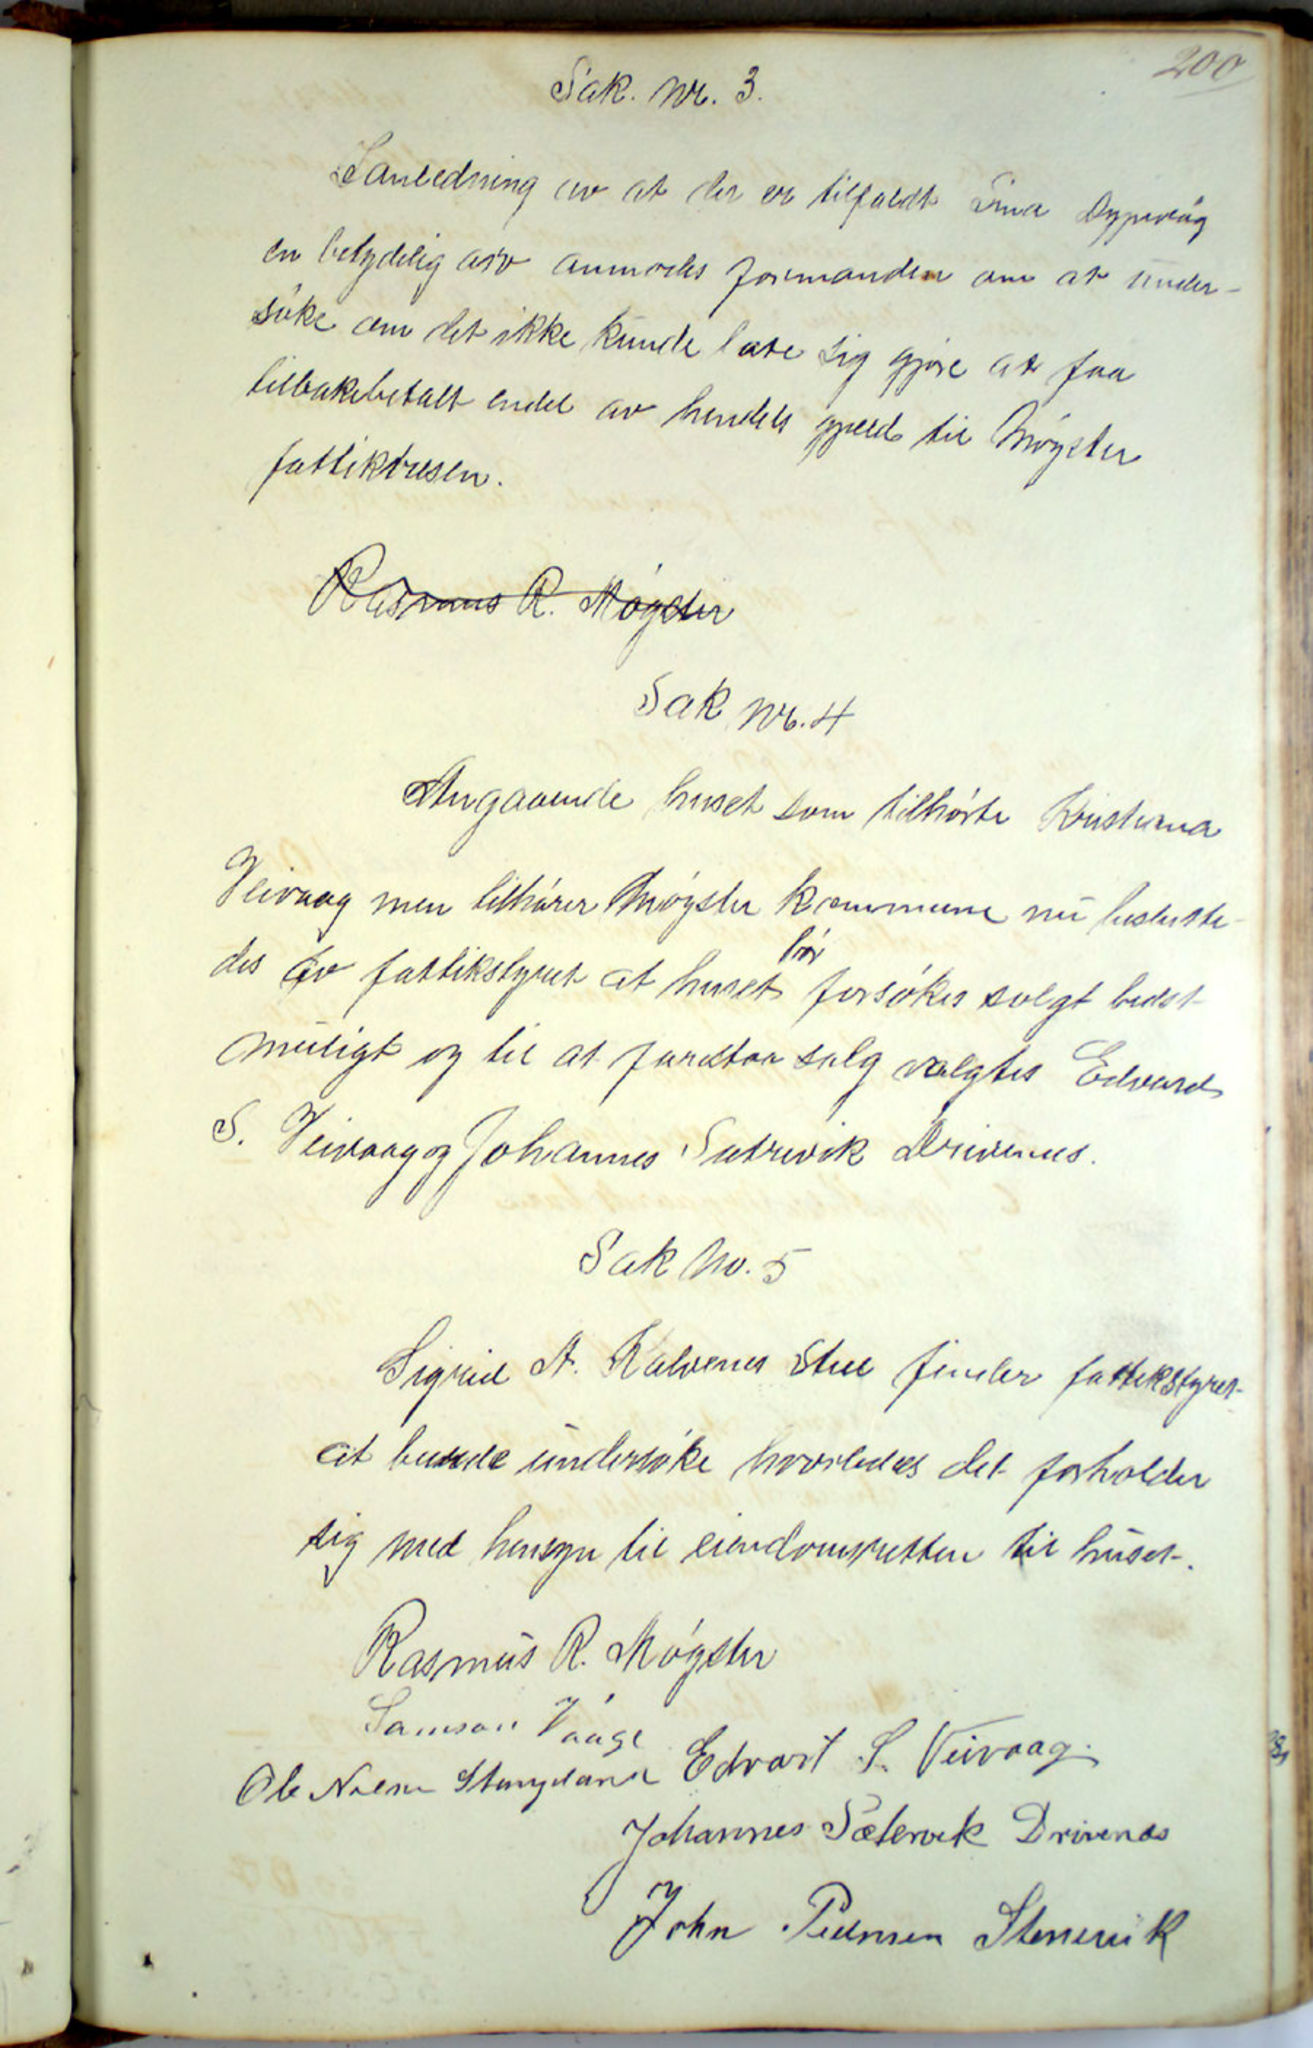 200
Sak. Nr. 3.
I anledning av at der er tilfaldt Sina Dypevåg
en betydelig arv anmodes formanden om at under-
søke om det ikke kunde late sig gjøre at faa
tilbakebetalt endel av hendes gjæld til Møgster
fattikvæsen.
Rasmus R. Møgster
Sak Nr. 4
Angaaende huset som tilhørte Kristiana
Veivaag men tilhører Møgster kommune nu beslutte-
des av fattikstyret at huset bør forsøkes solgt bedst
muligt og til at forestaa salg valgtes Edvard
S. Veivaag og Johannes Sætrevik Drivenes.
Sak No. 5
Sigrid A. Kalvenes finder fattikstyret
at burde undersøke hvorledes det forholder
sig med hensyn til eiendomsretten til huset.
Rasmus R. Møgster
Samson Våage
Ole Nilsen Stangeland Edvart S. Veivaag.
Johannes Sætervik Drivenes
John Pedersen Stenevik